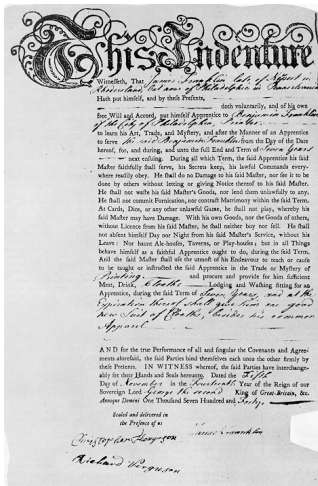 This Indenture
Witnesseth, That James Franklin late of Newport in
Rhodeisland, but now of Philadelphia in Pennsylvania
Hath put himself, and by these Presents,
doth voluntarily, and of his own
free Will and Accord, put himself Apprentice to Benjamin Franklin
of the City of Philadelphia, Printer
to learn his Art, Trade, and Mystery, and after the Manner of an Apprentice
to serve the said Benjamin Franklin from the Day of the Date
hereof, for, and during, and unto the full End and Term of Seven Years
next ensuing. During all which Term, the said Apprentice his said
Master faithfully shall serve, his Secrets keep, his lawful Commands every-
where readily obey. He shall do no Damage to his said Master, nor see it to be
done by others without letting or giving Notice thereof to his said Master.
He shall not waste his said Master's Goods, nor lend them unlawfully to any.
He shall not commit Fornication, nor contract Matrimony within the said Term.
At Cards, Dice, or any other unlawful Game, he shall not play, whereby his
said Master may have Damage. With his own Goods, nor the Goods of others,
without Licence from his said Master, he shall neither buy nor sell. He shall
not absent himself Day nor Night from his said Master's Service, without his
Leave: Nor haunt Ale-houses, Taverns, or Play-houses; but in all Things
behave himself as a faithful Apprentice ought to do, during the said Term.
And the said Master shall use the utmost of his Endeavour to teach or cause
to be taught or instructed the said Apprentice in the Trade or Mystery of
Printing and procure and provide for him sufficient
Meat, Drink, Cloaths Lodging and Washing fitting for an
Apprentice, during the said Term of Seven Years, and at the
Expiration thereof shall give him one good
new Suit of Cloaths, besides his common
Apparel
AND for the true Performance of all and singular the Covenants and Agree-
ments aforesaid, the said Parties bind themselves each unto the other firmly by
these Presents. IN WITNESS whereof, the said Parties have interchange-
ably set their Hands and Seals hereunto. Dated the Fifth
Day of November in the Fourteenth Year of the Reign of our
Sovereign Lord George the second King of Great-Britain, &c.
Annoque Domini One Thousand Seven Hundred and Forty
Sealed and delivered in
the Presence of us
James Franklin
Christopher Thompson
Richard Ferguson